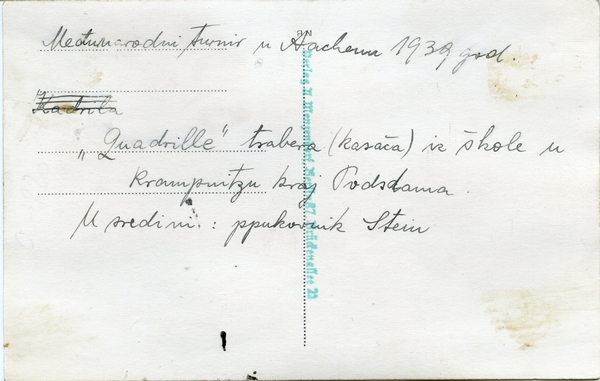 Međunarodni turnir u Aachenu 1939 god.
Kadrila
„Quadrille" trabera (kasača) iz škole u
Krampnitzu kraj Podsdama.
U sredini: ppukovnik Stein
Verlag H. Menzendorf Berlin